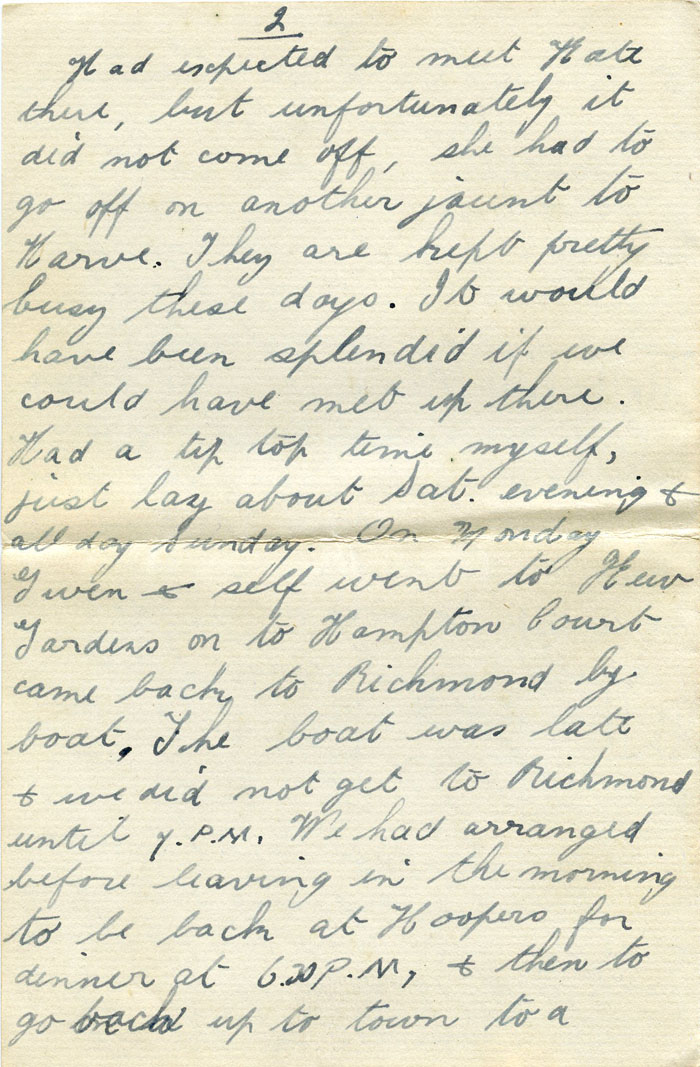 2
Had expected to meet Kate
there, but unfortunately it
did not come off, she had to
go off on another jaunt to
Harve. They are kept pretty
busy these days. It would
have been splendid if we
could have met up there.
Had a tip top time myself,
just lay about Sat. evening &
all day Sunday. On Monday
Gwen & self went to Kew
Gardens on to Hampton Court
came back to Richmond by
boat. The boat was late
& we did not get to Richmond
until 7. P.M. We had arranged
before leaving in the morning
to be back at Hoopers for
dinner at 6.30 P.M, & then to
go back up to town to a